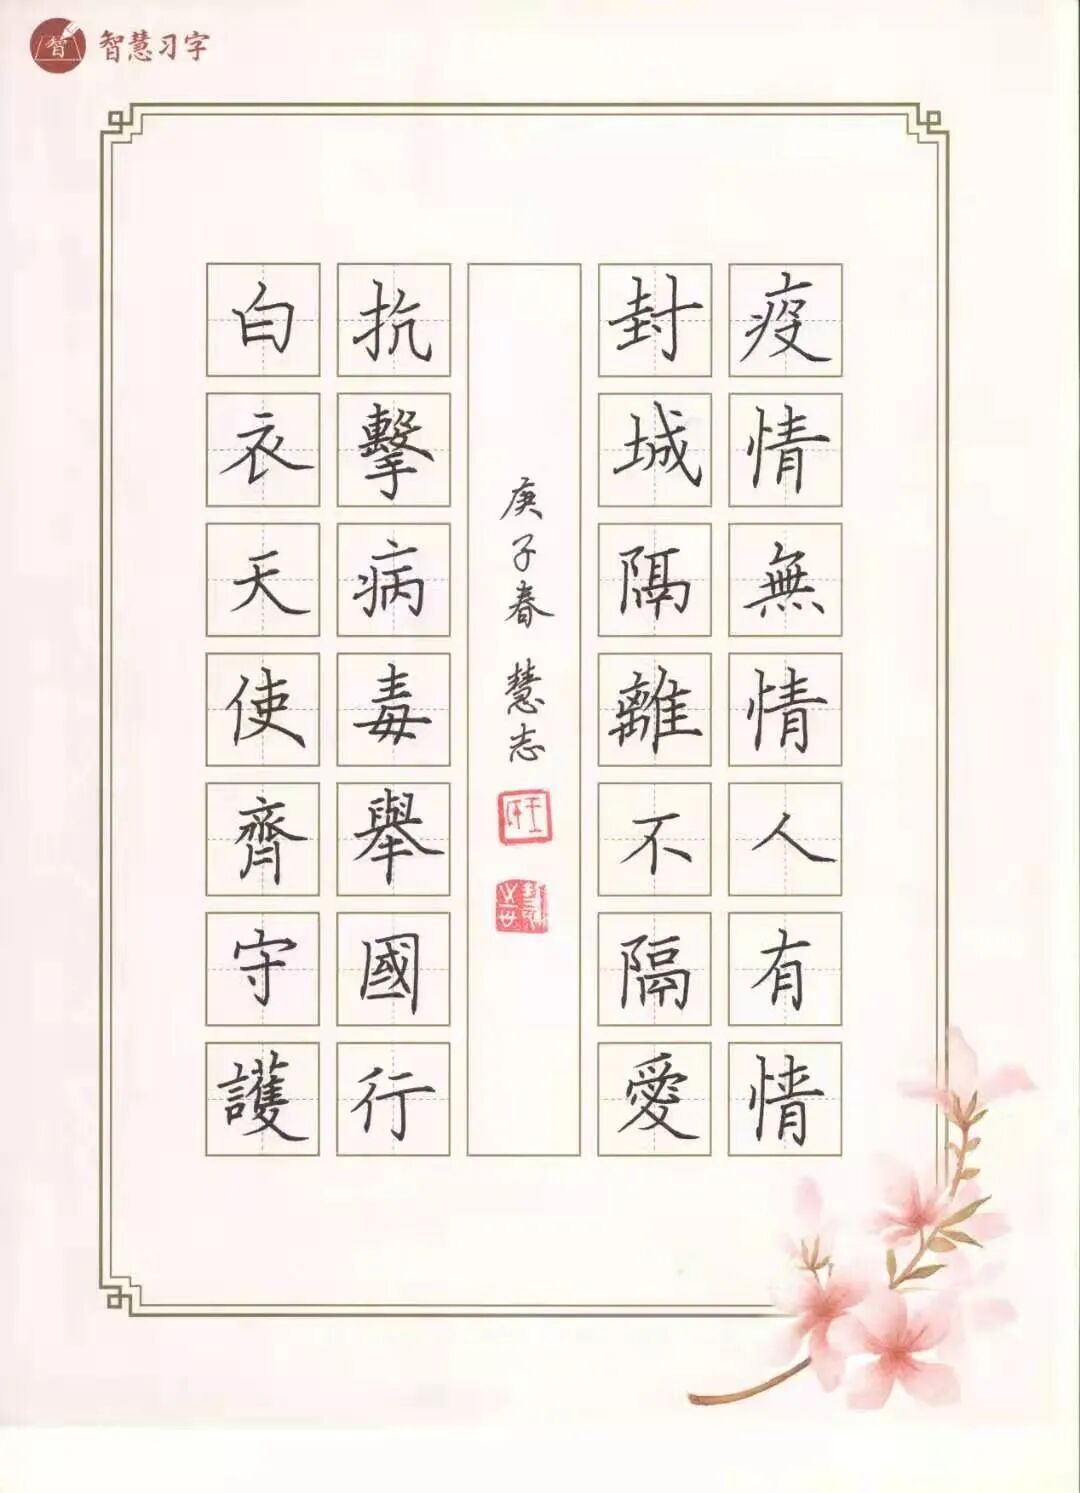 智慧习字
疫情無情人有情
封城隔離不隔愛
庚子春 慧志
抗擊病毒舉國行
白衣天使齊守護